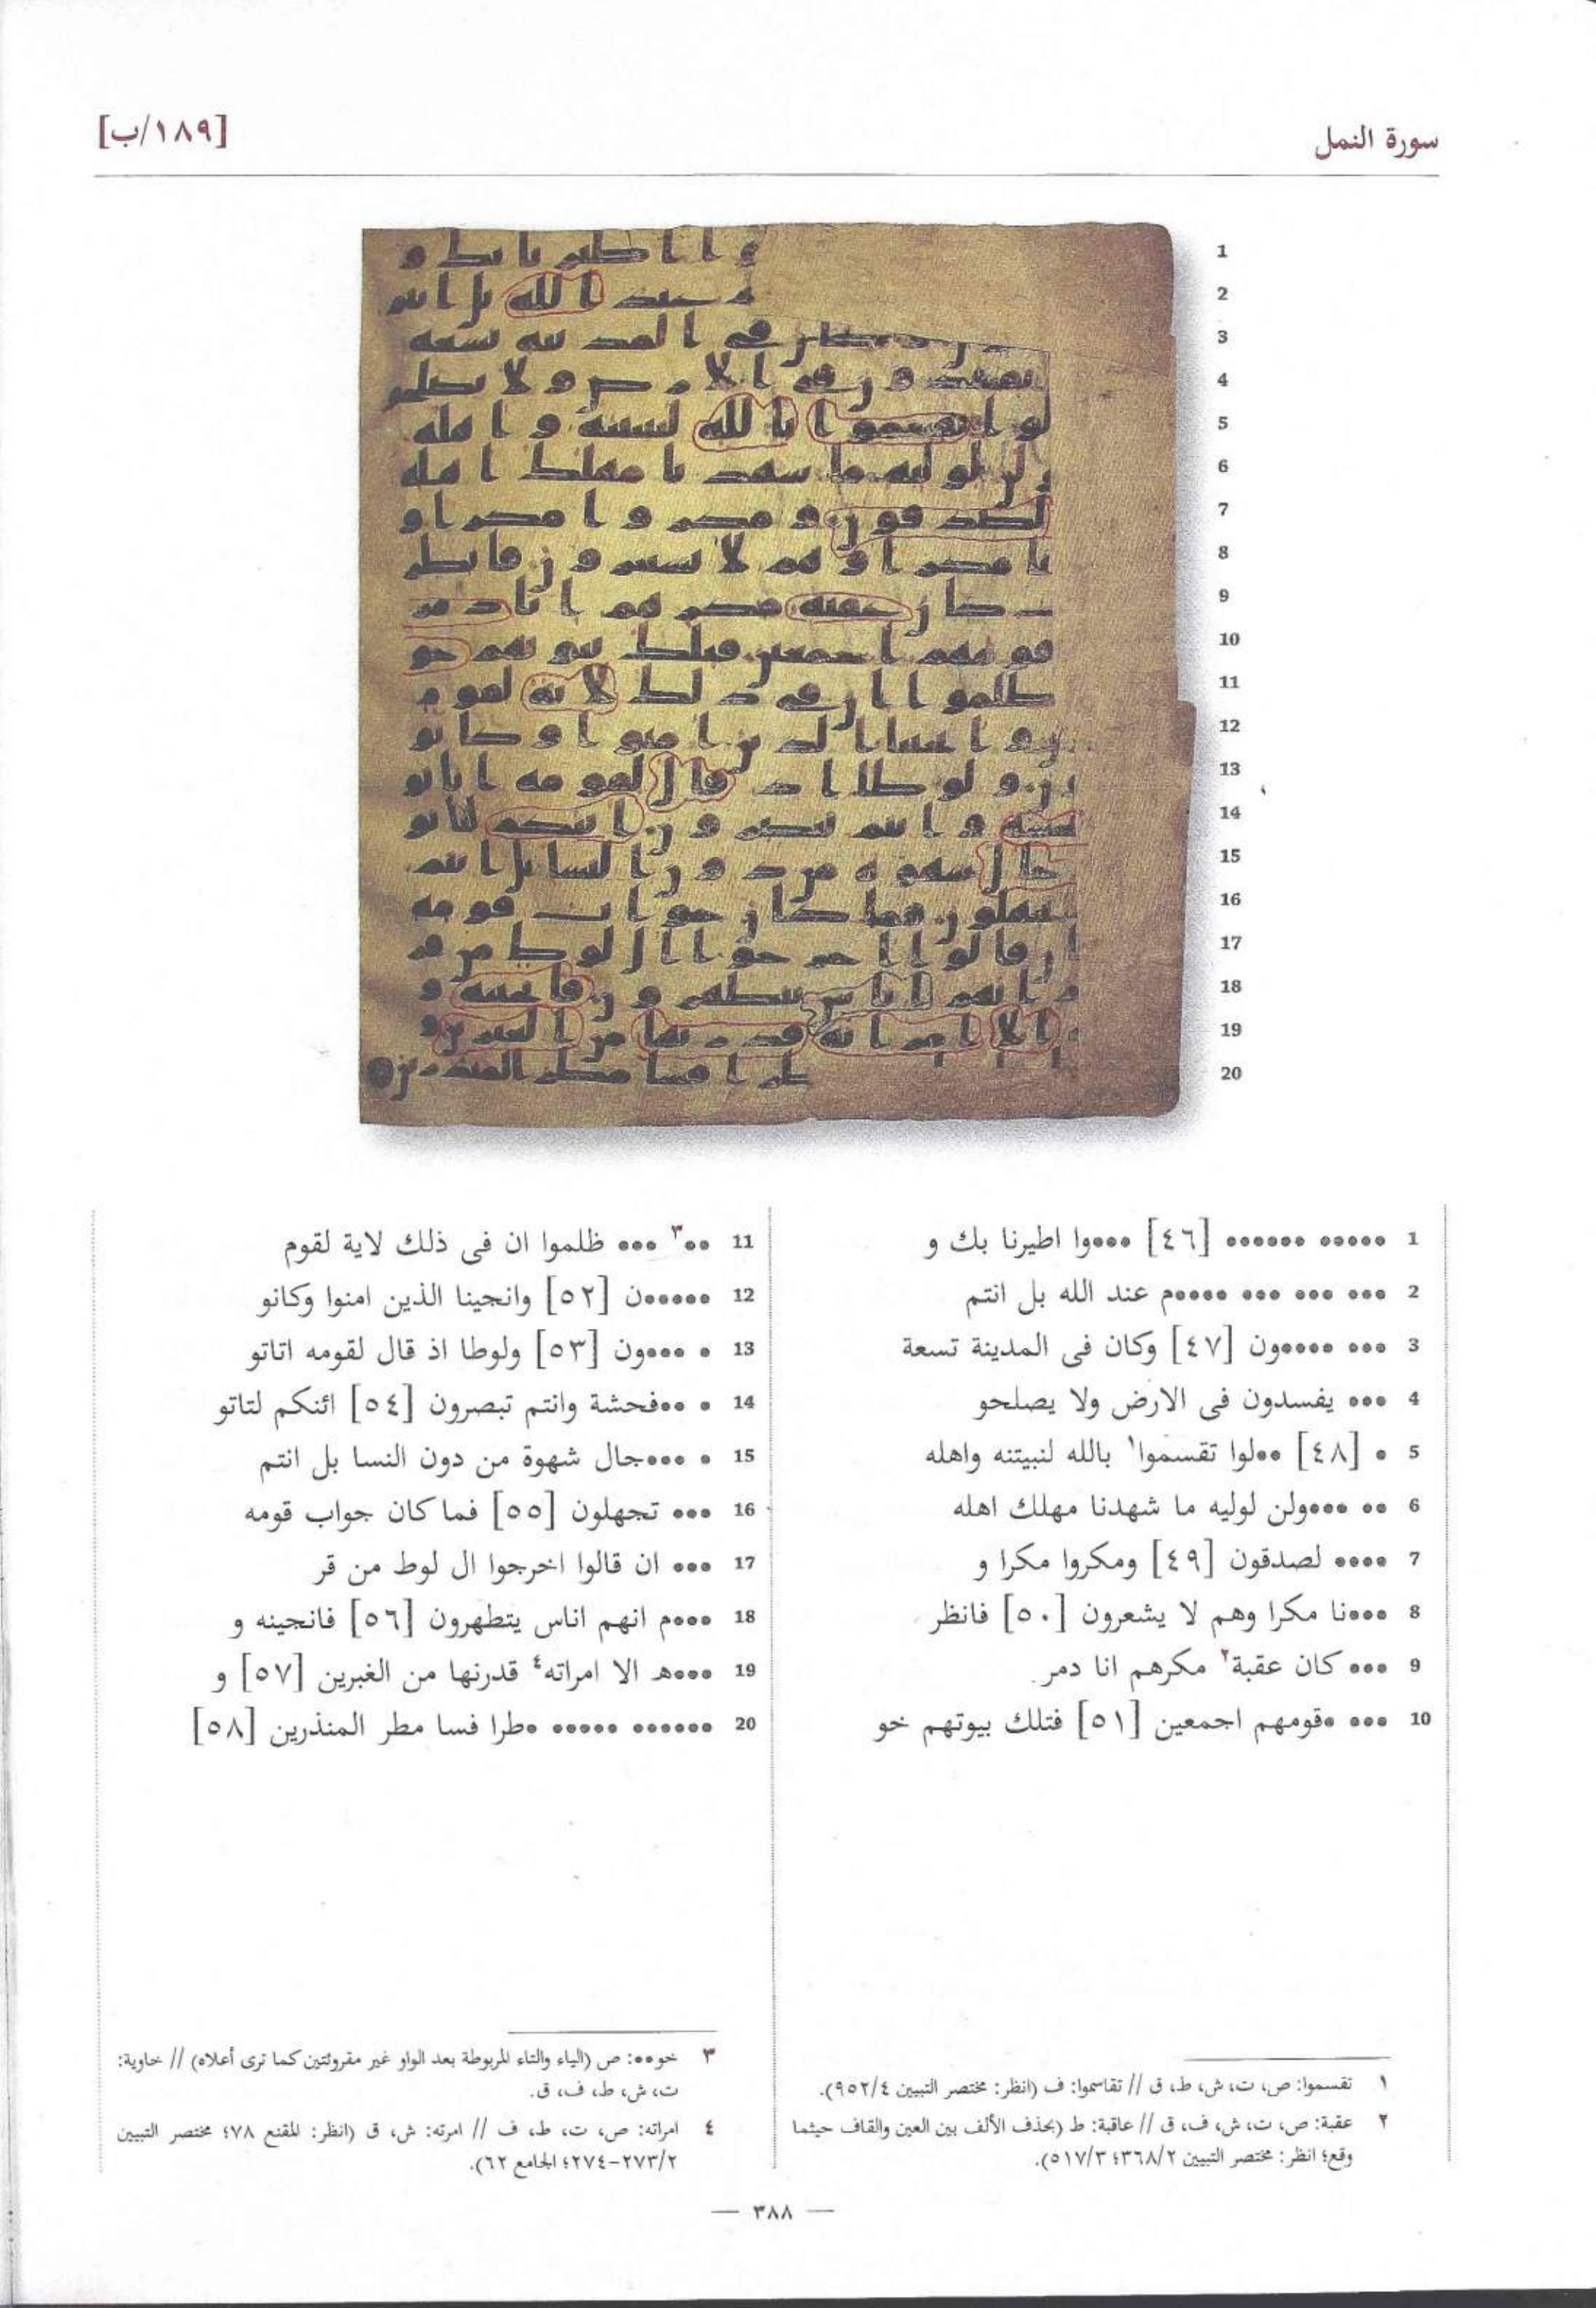 سورة النمل
[١٨٩/ب]
1
2
3
4
5
6
7
8
9
10
11
12
13
14
15
16
17
18
19
20
1 ●●●●● ●●●●●● [٤٦] ●●●وا اطيرنا بك و
2 ●●● ●●● ●●● ●●●●●م عند الله بل انتم
3 ●●● ●●●●●ون [٤٧] وكان فى المدينة تسعة
4 ●●● يفسدون فى الارض ولا يصلحو
5 ● [٤٨] ●●لوا تقسموا١ بالله لنبيتنه واهله
6 ●● ●●●ولن لوليه ما شهدنا مهلك اهله
7 ●●●● لصدقون [٤٩] ومكروا مكرا و
8 ●●●نا مكرا وهم لا يشعرون [٥٠] فانظر
9 ●●● كان عقبة٢ مكرهم انا دمر
10 ●●● ●قومهم اجمعين [٥١] فتلك بيوتهم خو
11 ●●٣ ●●● ظلموا ان فى ذلك لاية لقوم
12 ●●●●●●ن [٥٢] وانجينا الذين امنوا وكانو
13 ● ●●●ون [٥٣] ولوطا اذ قال لقومه اتاتو
14 ● ●●فحشة وانتم تبصرون [٥٤] ائنكم لتاتو
15 ● ●●●جال شهوة من دون النسا بل انتم
16 ●●● تجهلون [٥٥] فما كان جواب قومه
17 ●●● ان قالوا اخرجوا ال لوط من قر
18 ●●●م انهم اناس يتطهرون [٥٦] فانجينه و
19 ●●●ه‍ الا امراته٤ قدرنها من الغبرين [٥٧] و
20 ●●●●●● ●●●●● ●طرا فسا مطر المنذرين [٥٨]
١ تقسموا: ص، ت، ش، ط، ق // تقاسموا: ف (انظر: مختصر التبيين ٩٥٢/٤).
٢ عقبة: ص، ت، ش، ف، ق // عاقبة: ط (بحذف الألف بين العين والقاف حيثما
وقع؛ انظر: مختصر التبيين ٣٦٨/٢؛ ٥١٧/٣).
٣ خو●●: ص (الياء والتاء المربوطة بعد الواو غير مقروئتين كما ترى أعلاه) // خاوية:
ت، ش، ط، ف، ق.
٤ امراته: ص، ت، ط، ف // امرته: ش، ق (انظر: المقنع ٧٨؛ مختصر التبيين
٢٧٣/٢-٢٧٤؛ الجامع ٦٢).
— ٣٨٨ —